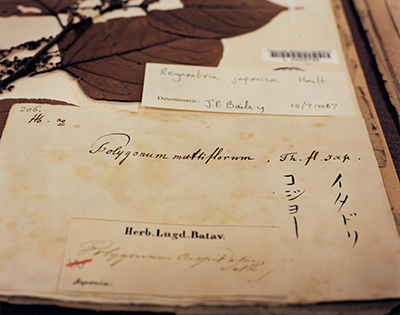 Reynoutria japonica Houtt.
Determinavit: J.P. Bailey 10/7/1987
206.
Polygonum multiflorum, Th. fl. Jap.
イタドリ
コジョー
Herb. Lugd. Batav.
Polygonum cuspidatum
Japonia.